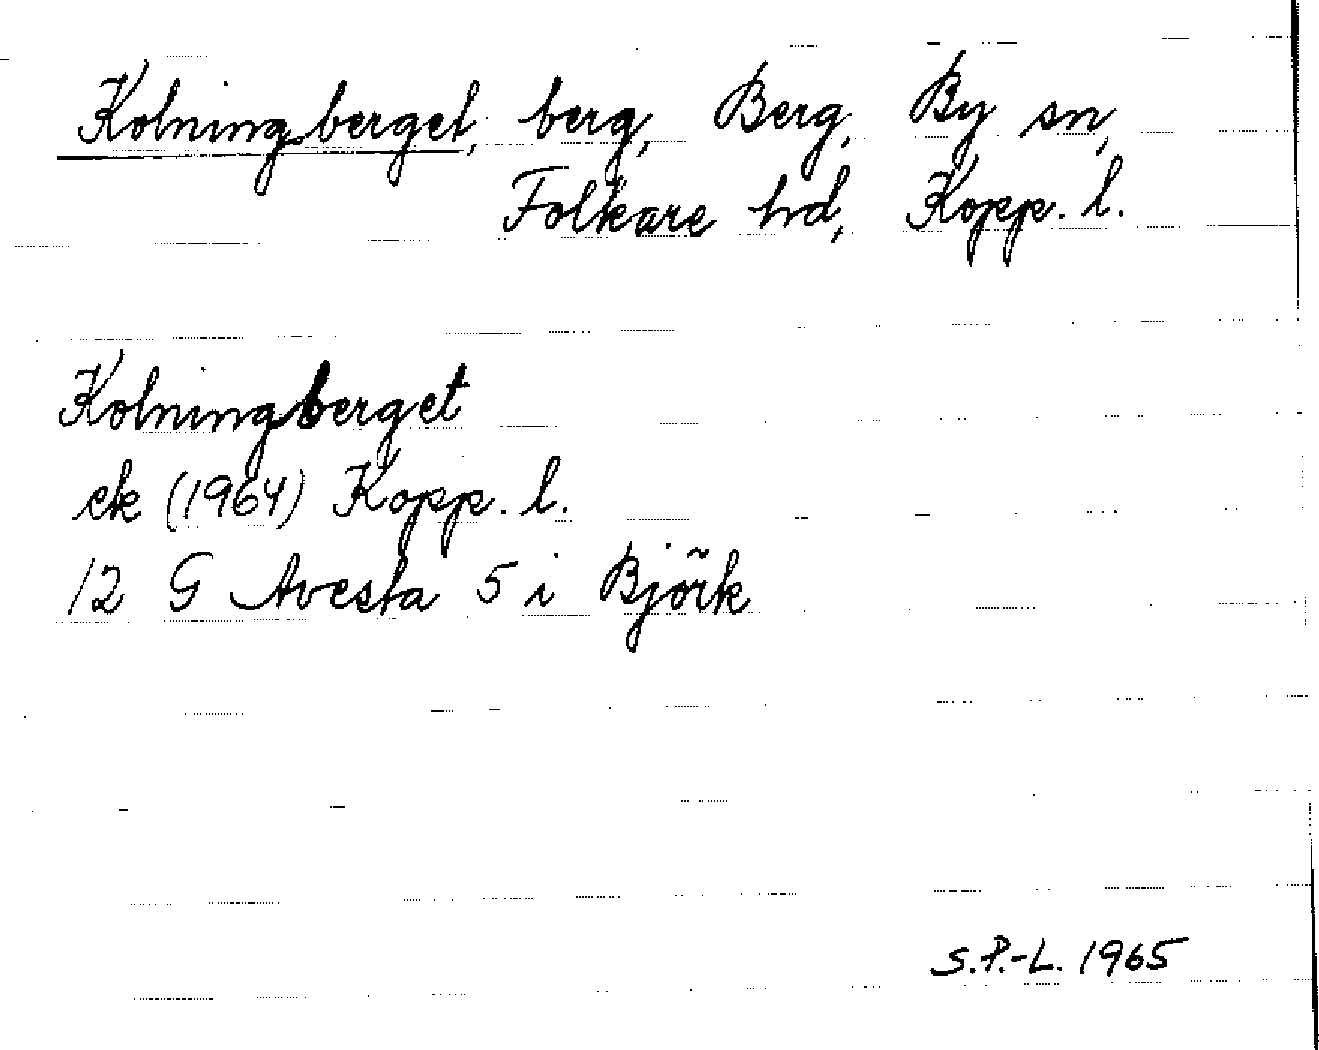 Kolningberget, berg, Berg, By sn,
Folkare hd, Kopp. l.
Kolningberget
ek (1964) Kopp. l.
12 G Avesta 5 i Björk
S.P.-L. 1965